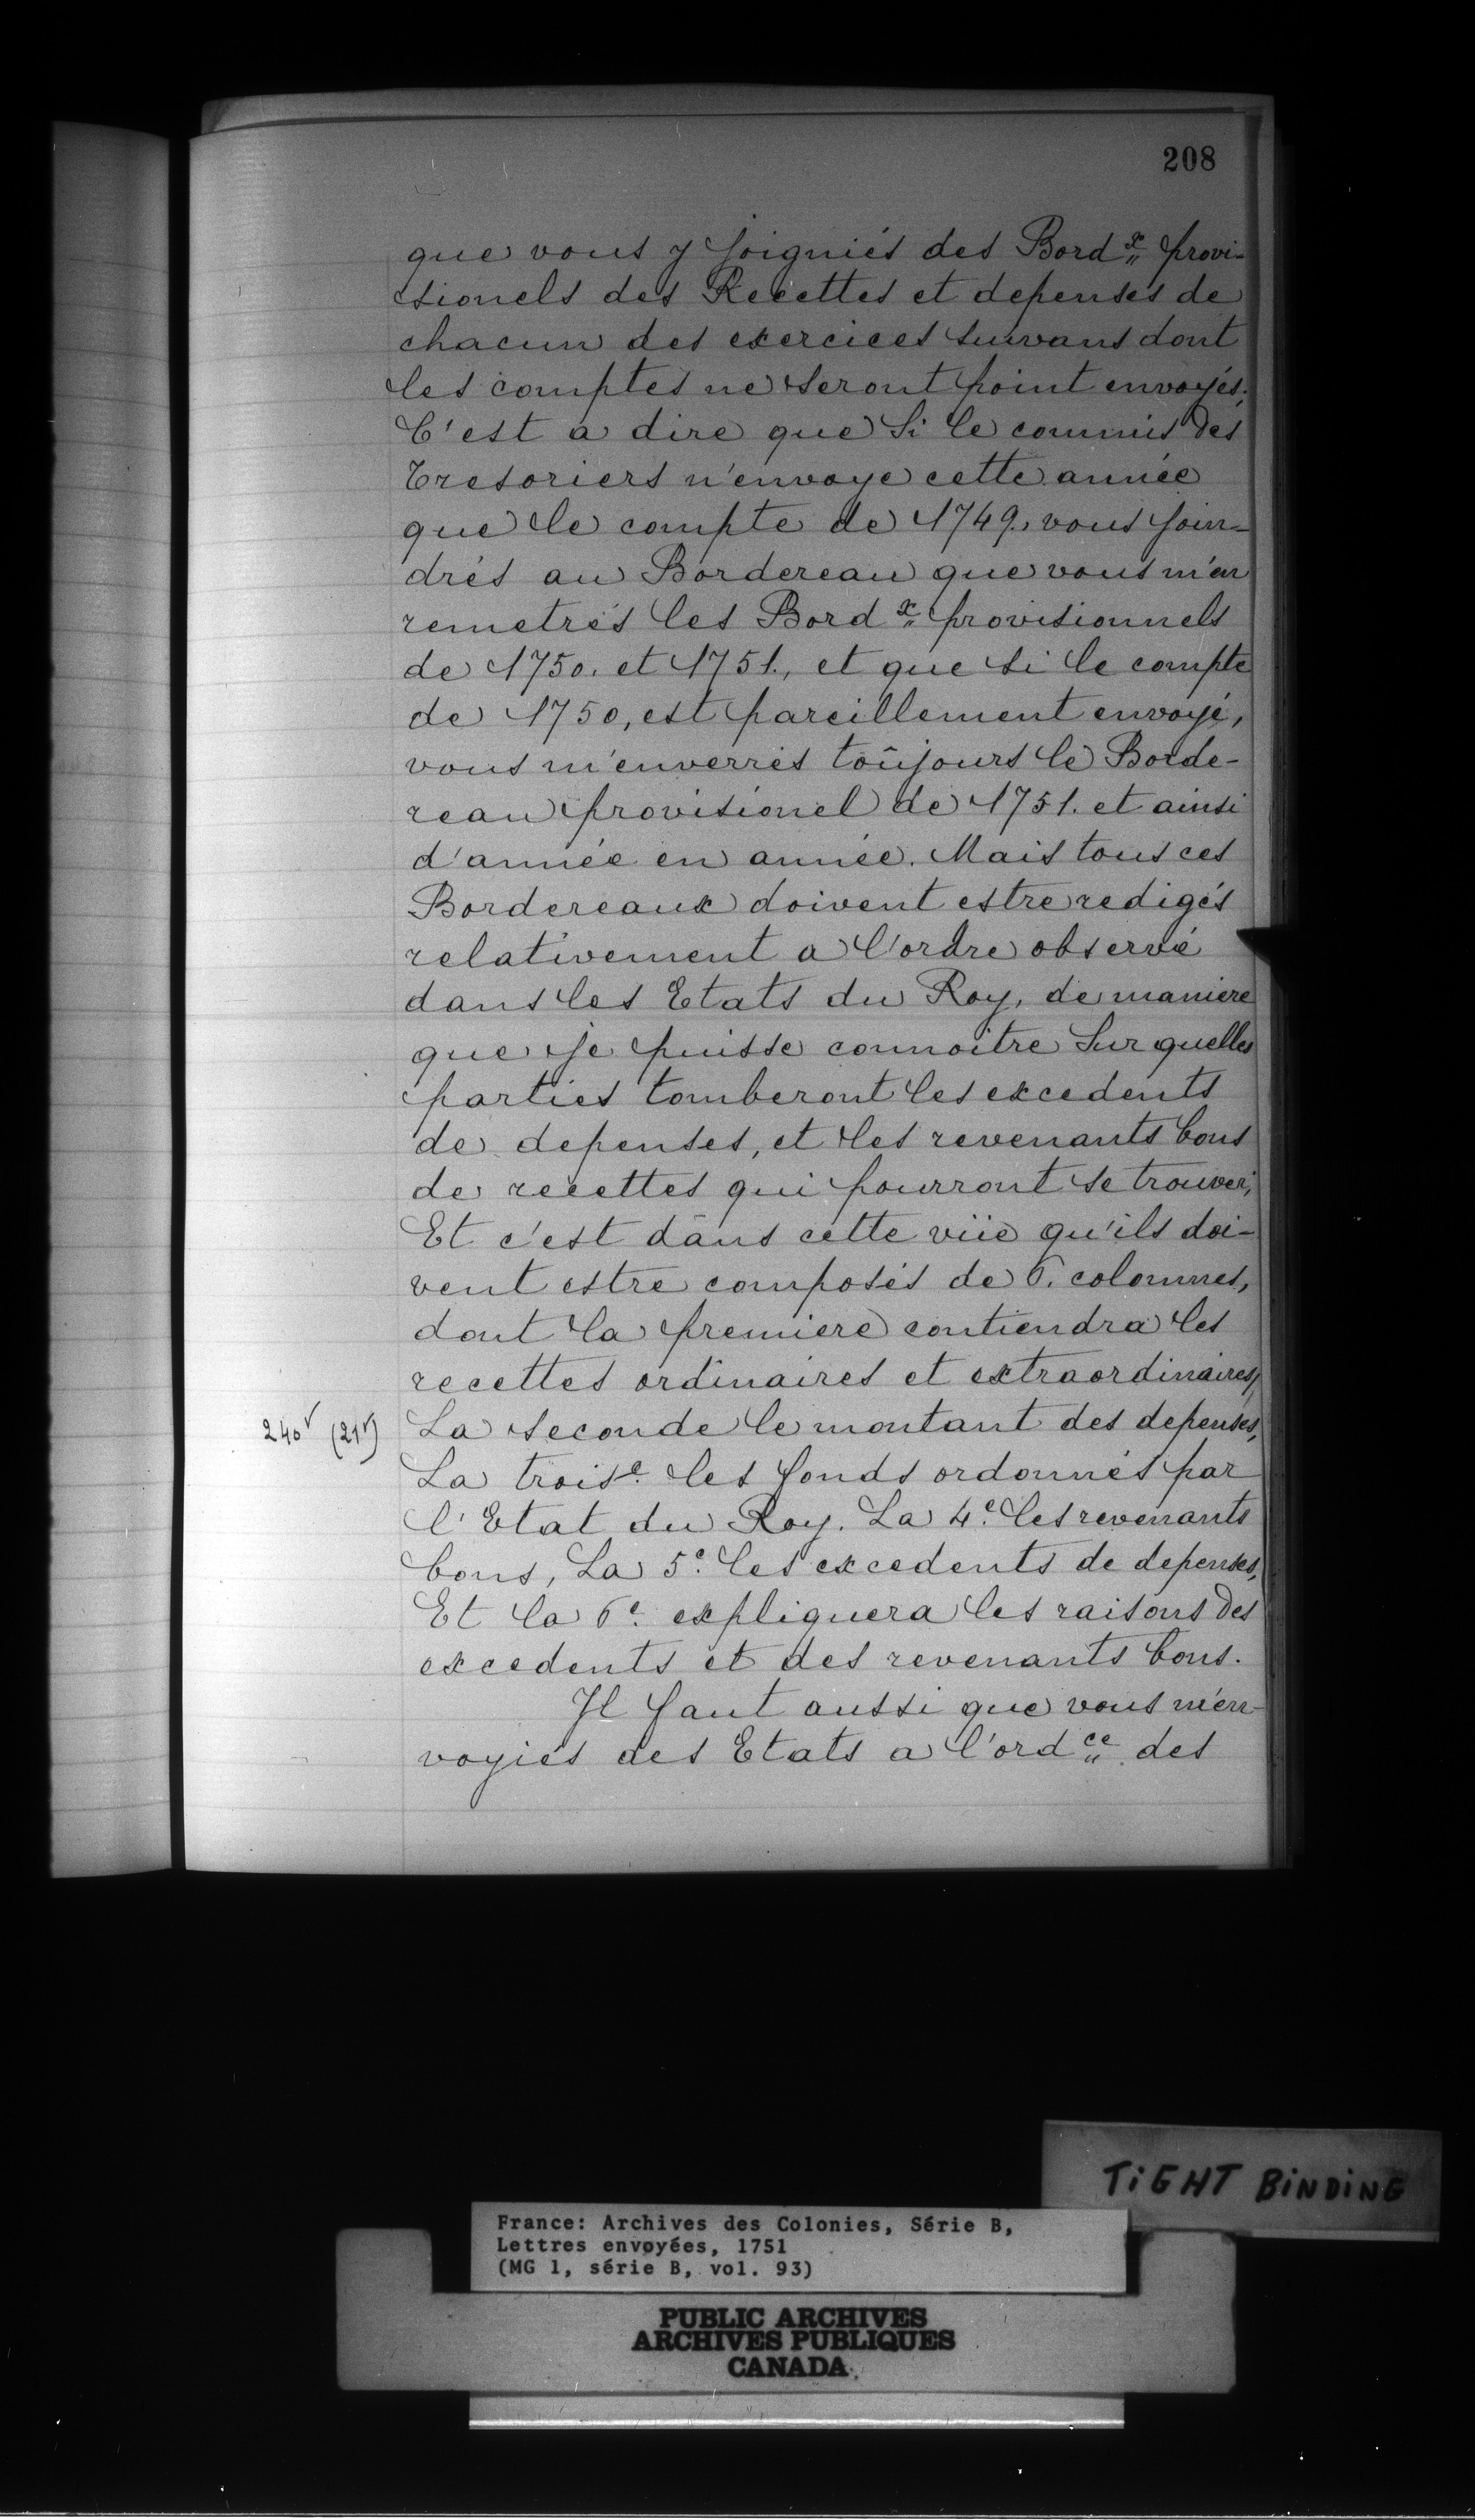 208
que vous y joigniés des Bord.x provi-
sionels des Recettes et depenses de
chacun des exercices suivans dont
les comptes ne seront point envoyés;
C'est a dire que si le commis des
Tresoriers n'envoye cette année
que le compte de 1749., vous join-
drés au Bordereau que vous m'en
remetrés les Bord.x provisionnels
de 1750. et 1751., et que si le compte
de 1750, est pareillement envoyé,
vous m'enverrés toûjours le Borde-
reau provisionel de 1751. et ainsi
d'année en année. Mais tous ces
Bordereaux doivent estre redigés
relativement a l'ordre observé
dans les Etats du Roy, de maniere
que je puisse connoitre sur quelles
parties tomberont les excedents
de depenses, et les revenants bons
de recettes qui pourront se trouver;
Et c'est dans cette vüe qu'ils doi-
vent estre composés de 6. colonnes,
dont la premiere contiendra les
recettes ordinaires et extraordinaires,
240v (21v) La seconde le montant des depenses,
La trois.e les fonds ordonnés par
l'Etat du Roy. La 4.e les revenants
bons, La 5.e les excedents de depenses,
Et la 6.e expliquera les raisons des
excedents et des revenants bons.
Il faut aussi que vous m'en-
voyiés des Etats a l'ord.ce des
TIGHT BINDING
France: Archives des Colonies, Série B,
Lettres envoyées, 1751
(MG 1, série B, vol. 93)
PUBLIC ARCHIVES
ARCHIVES PUBLIQUES
CANADA